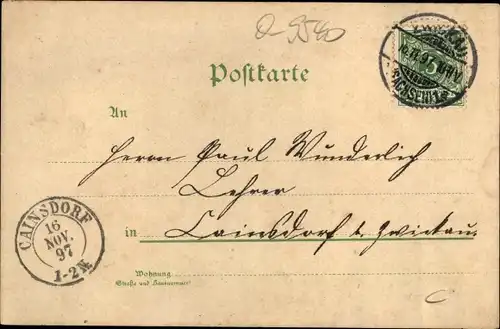 a-9580
Postkarte
ZWICKAU
16.11.97.
SACHSEN
An
Herrn Paul Wunderlich
Lehrer
in Cainsdorf b. Zwickau.
CAINSDORF
16
NOV.
97
1-2N
Wohnung
(Straße und Hausnummer)
C